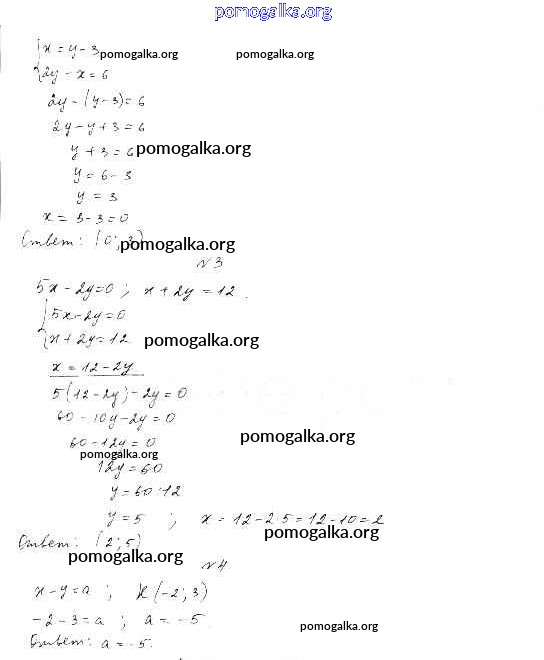 pomogalka.org
{ x = y - 3 pomogalka.org pomogalka.org
2y - x = 6
2y - (y - 3) = 6
2y - y + 3 = 6
y + 3 = 6 pomogalka.org
y = 6 - 3
y = 3
x = 3 - 3 = 0
Ответ: (0; 3) pomogalka.org
№3
5x - 2y = 0 ; x + 2y = 12.
{ 5x - 2y = 0
x + 2y = 12 pomogalka.org
x = 12 - 2y
5(12 - 2y) - 2y = 0
60 - 10y - 2y = 0
60 - 12y = 0 pomogalka.org
pomogalka.org
12y = 60
y = 60:12
y = 5 ; x = 12 - 2·5 = 12 - 10 = 2
pomogalka.org
Ответ: (2; 5)
pomogalka.org
№4
x - y = a ; K(-2; 3)
-2 - 3 = a ; a = -5.
pomogalka.org
Ответ: a = -5.